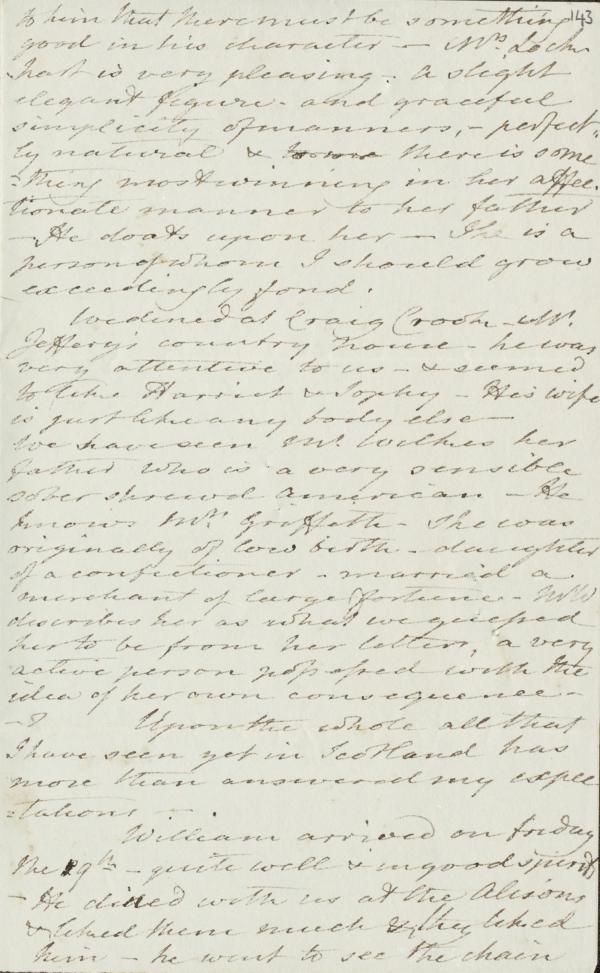 143
to him that there must be something
good in his character – Mrs. Lock
hart is very pleasing. a slight
elegant figure – and graceful
simplicity of manners, – perfect=
ly natural & there is some
=thing most winning in her affec=
tionate manner to her father
– He doats upon her – She is a
person of whom I should grow
exceedingly fond.
We dined at Craig Crook – Mr.
Jeffery's country house – he was
very attentive to us – & seemed
to like Harriet & Sophy – His wife
is just like any body else –
We have seen Mr. Wilkes her
father who is a very sensible
sober shrewd American – He
knows Mrs. Griffith – She was
originally of low birth – daughter
of a confectioner – married a
merchant of large fortune – Mr W
describes her as what we guessed
her to be from her letters, a very
active person possessed with the
idea of her own consequence –
– Upon the whole all that
I have seen yet in Scotland has
more than answered my expec
=tations –
William arrived on friday
the 19th – quite well & in good spirits
– He dined with us at the Alisons
& liked them much & they liked
him – he went to see the chain